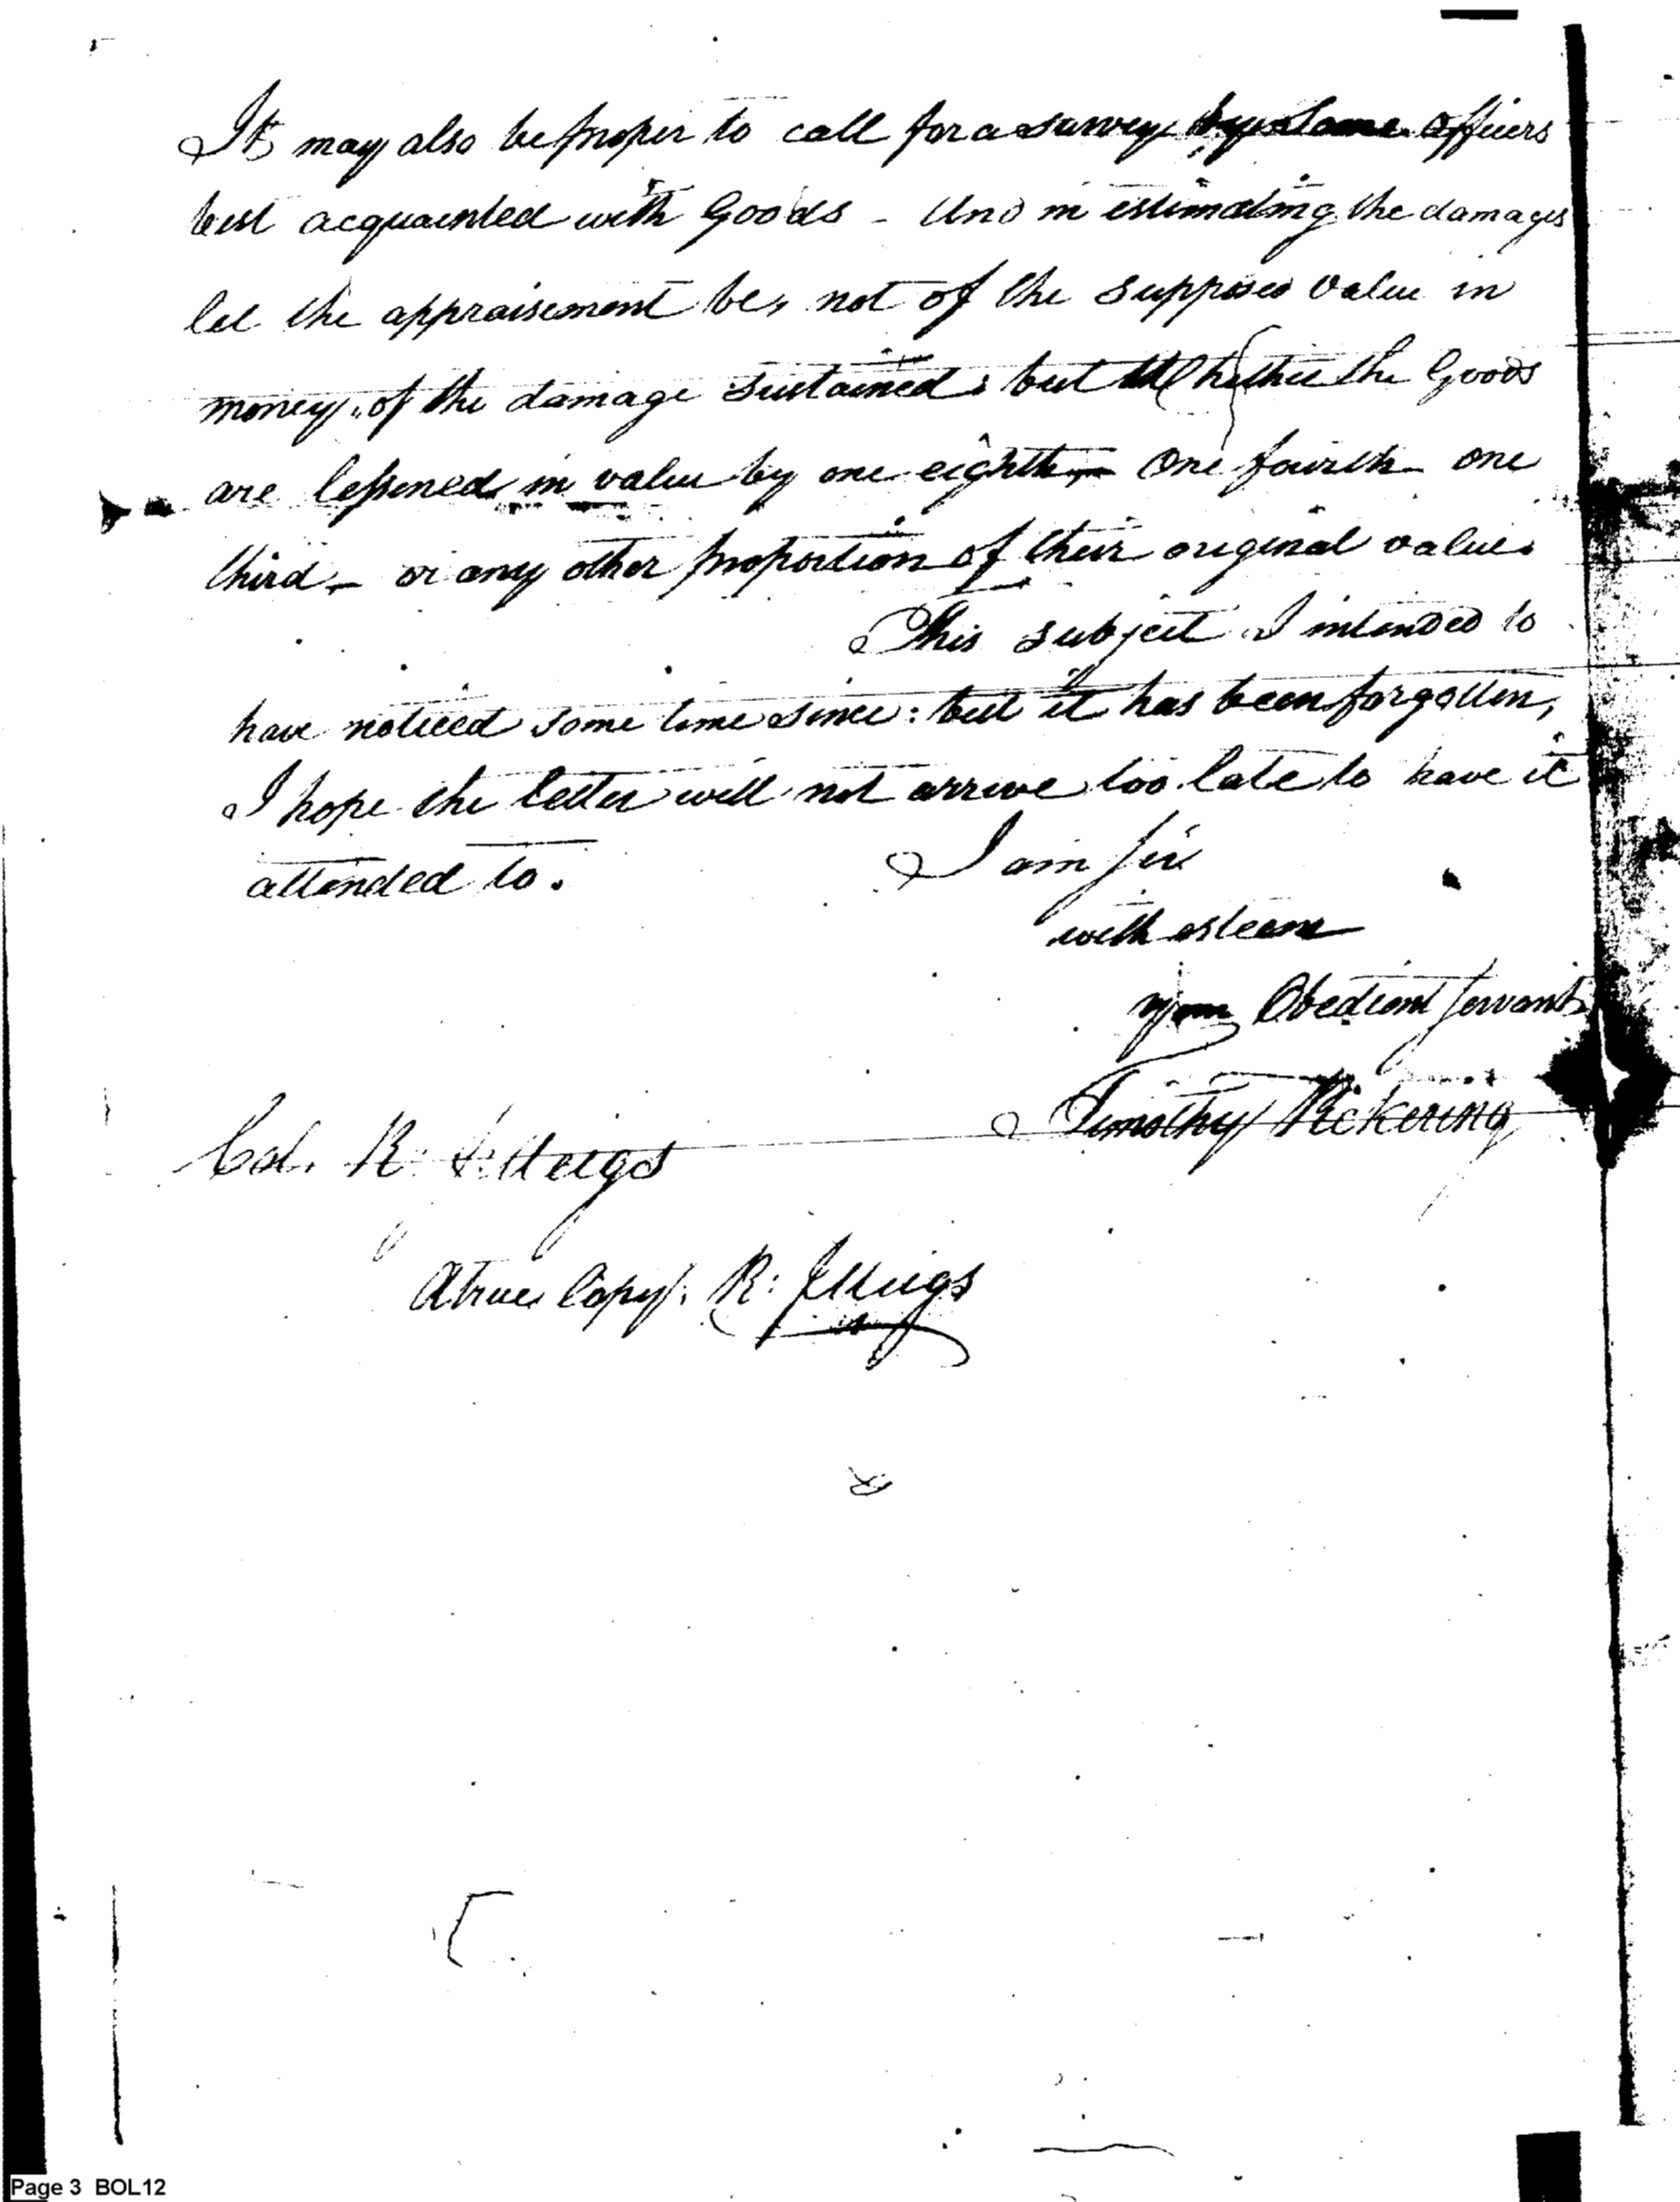 It may also be proper to call for a survey by some Officers
best acquainted with Goods - And in estimating the damages
let the appraisement be, not of the supposed value in
money, of the damage sustained; but whether the Goods
are lessened in value by one eighth, - One fourth - one
third, - or any other proportion of their original value.
This subject I intended to
have noticed some time since: but it has been forgotten,
I hope the letter will not arrive too late to have it
attended to.
I am Sir
with esteem
your Obedient Servant
Timothy Pickering
Col. R: J: Meigs
A true Copy. R: J Meigs
Page 3 BOL12